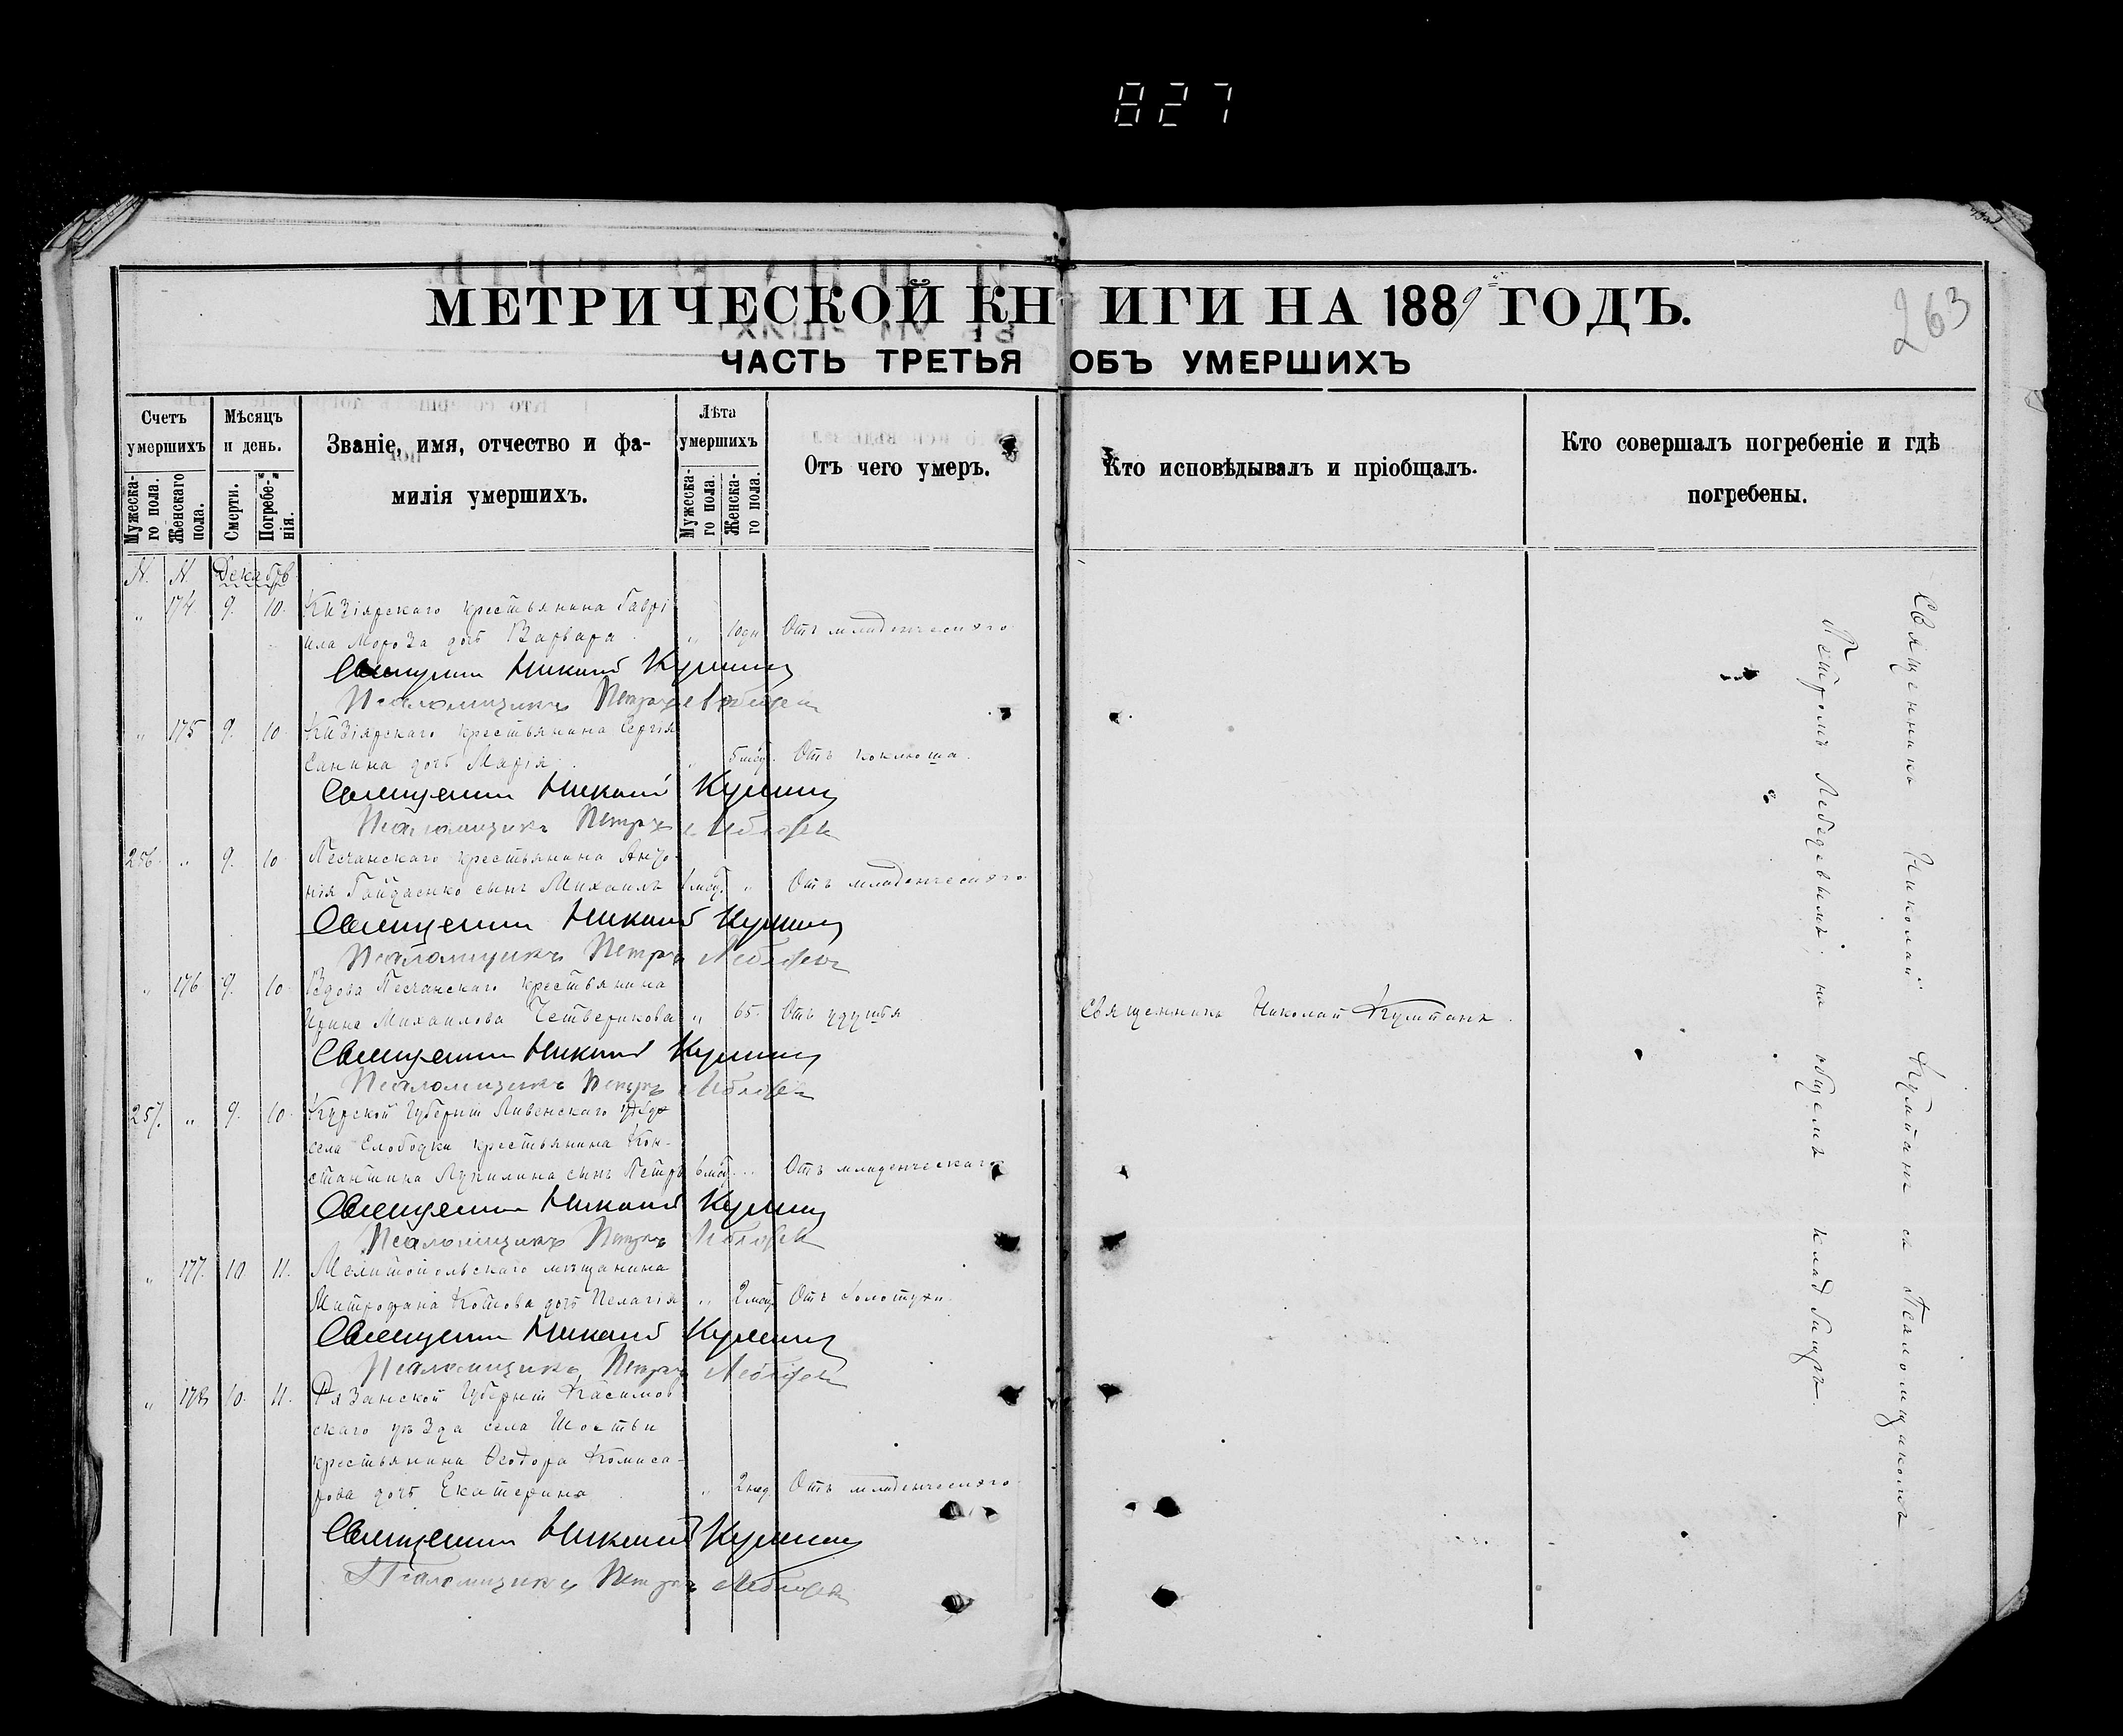 827
МЕТРИЧЕСКОЙ КНИГИ НА 1889 ГОДЪ.
263
ЧАСТЬ ТРЕТЬЯ ОБЪ УМЕРШИХЪ
Счетъ умершихъ
Мужеска-го пола.
Женскаго пола.
Мѣсяцъ и день.
Смерти.
Погребе-нія.
Званіе, имя, отчество и фа-
милія умершихъ.
Лѣта умершихъ
Мужеска-го пола.
Женска-го пола.
Отъ чего умеръ.
Кто исповѣдывалъ и пріобщалъ.
Кто совершалъ погребеніе и гдѣ
погребены.
N. N. Декабрь
„ 174 9. 10. Кизіярскаго крестьянина Гаврі
ила Мороза дочь Варвара „ 10дн Отъ младенческаго
Священникъ Николай Кулманъ
Псаломщикъ Петръ Лебедевъ
„ 175 9. 10. Кизіярскаго крестьянина Сергія
Санина дочь Марія „ 5мѣс. Отъ коклюша.
Священникъ Николай Кулманъ
Псаломщикъ Петръ Лебедевъ
256. „ 9. 10. Песчанскаго крестьянина
Гайдаенко сынъ Михаилъ „ Отъ младенческаго
Священникъ Николай Кулманъ
Псаломщикъ Петръ Лебедевъ
„ 176 9. 10. Вдова Песчанскаго крестьянина
Ирина Михаилова Четверикова „ 65. Отъ удушья Священникъ Николай
Священникъ Николай Кулманъ
Псаломщикъ Петръ Лебедевъ
257. „ 9. 10. Курской Губерніи Ливенскаго уѣзда
села Слободки крестьянина Кон-
стантина сынъ Петръ 6мѣс. „ Отъ младенческаго
Священникъ Николай Кулманъ
Псаломщикъ Петръ Лебедевъ
„ 177. 10. 11. Мелитопольскаго мѣщанина
Митрофана Котова дочь Пелагія „ 2мѣс. Отъ золотухи.
Священникъ Николай Кулманъ
Псаломщикъ Петръ Лебедевъ
„ 178 10. 11. Рязанской Губерніи Касимов
скаго уѣзда села Шостьи
крестьянина Ѳеодора Комиса-
рова дочь Екатерина „ 2нед. Отъ младенческаго
Священникъ Николай Кулманъ
Псаломщикъ Петръ Лебедевъ
Священникъ Николай съ Псаломщикомъ
Петромъ Лебедевымъ, на общемъ кладбищѣ.